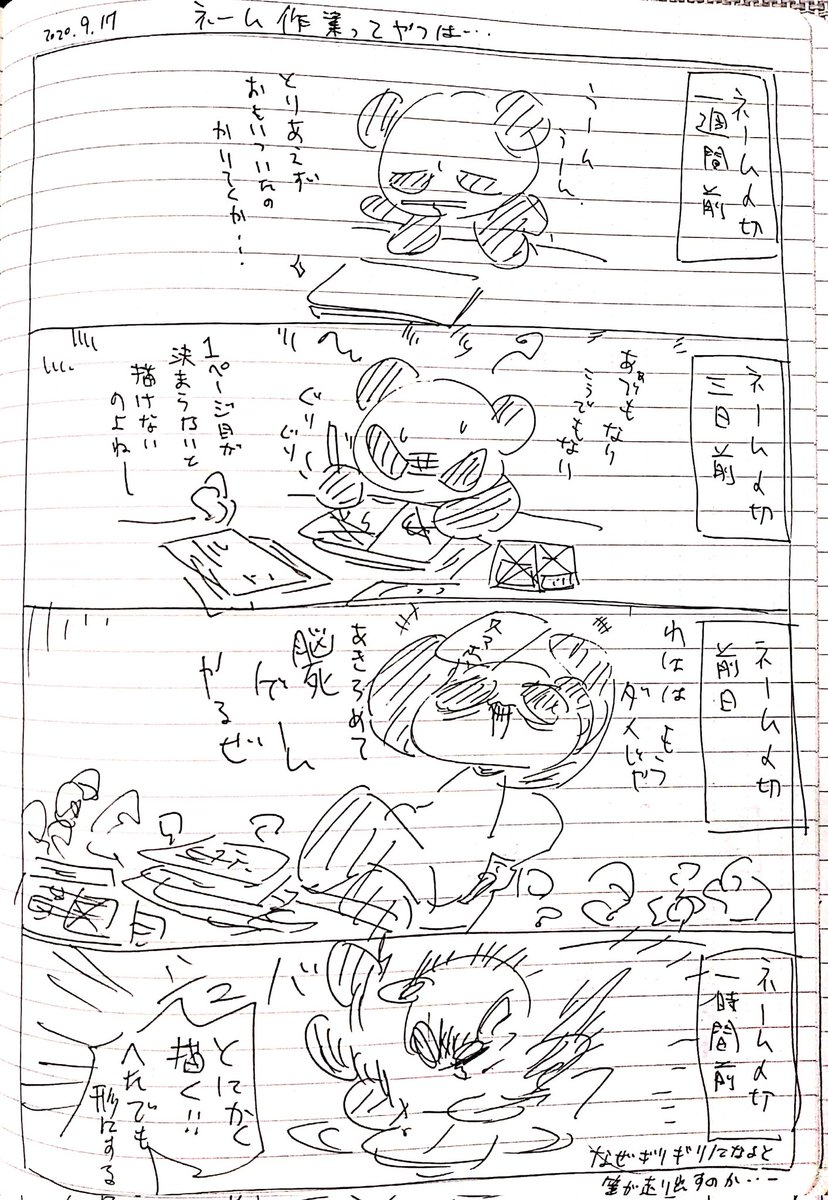 2020.9.17
ネーム作業ってやつは…
ネーム〆切
一週間前
うーん
うーん
とりあえず
おもいついたの
かいてくか…
ネーム〆切
三日前
ああでもない
こうでもない
ぐり
ぐり
1ページ目が
決まらないと
描けない
のよねー
ネーム〆切
前日
わはは もう
ダメじゃ
あきらめて
脳死
で
やるぜ
ネーム〆切
一時間前
とにかく
描く!!
へたでも
形にする
なぜギリギリになると
筆が走り出すのか…